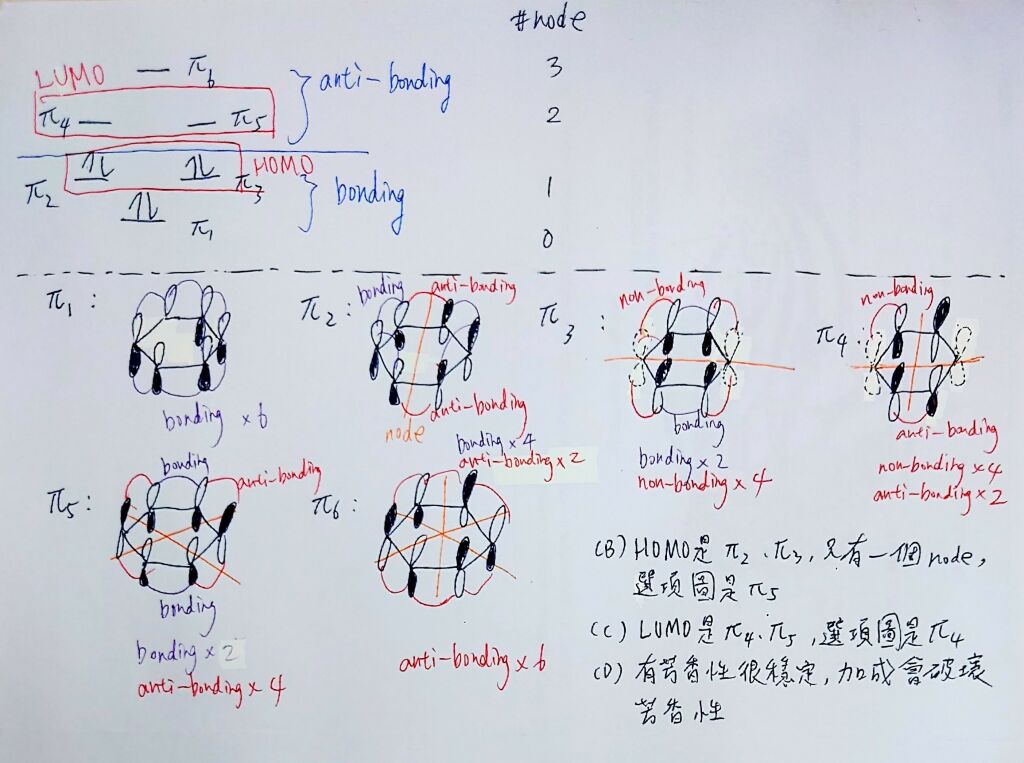 #node
LUMO — π6 anti-bonding 3
π4 — — π5 2
HOMO
π2 π3 bonding 1
π1 0
π1: π2: bonding anti-bonding π3: non-bonding π4: non-bonding
anti-bonding
node
bonding × 6
bonding
anti-bonding
bonding × 4
anti-bonding × 2
bonding × 2
non-bonding × 4
non-bonding × 4
anti-bonding × 2
π5: bonding anti-bonding π6:
bonding
bonding × 2
anti-bonding × 4
anti-bonding × 6
(B) HOMO是 π2、π3, 只有一個 node,
選項圖是 π5
(C) LUMO是 π4、π5, 選項圖是 π4
(D) 有芳香性很穩定, 加成會破壞
芳香性